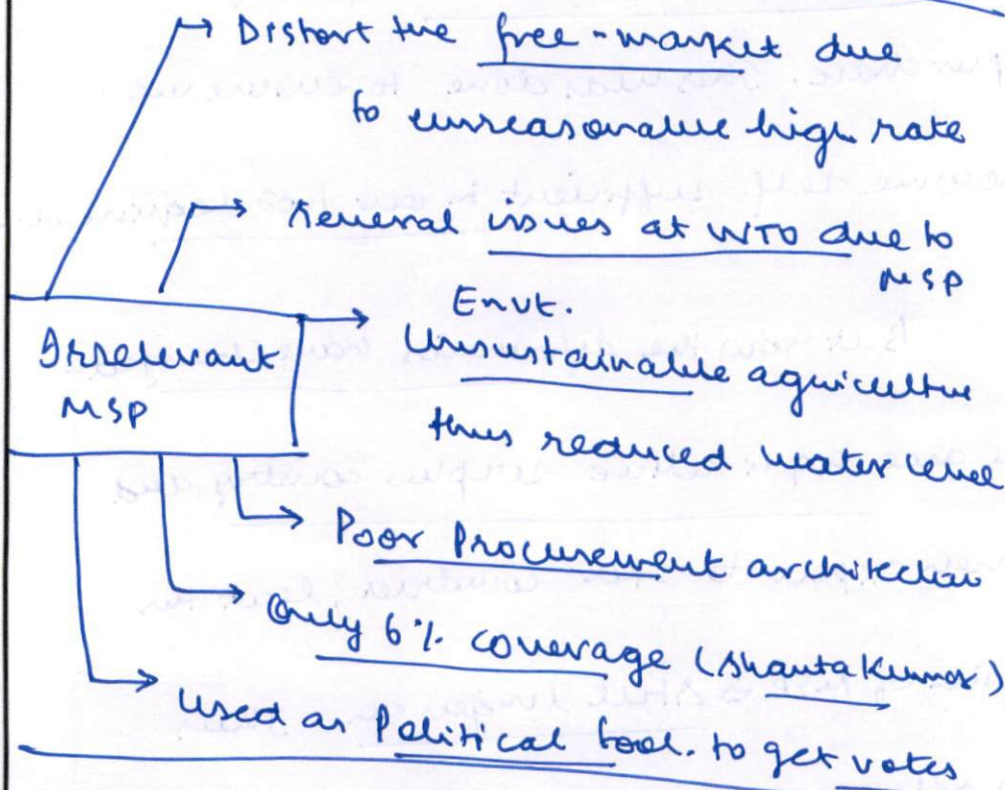 Distort the free-market due
to unreasonable high rate
Several issues at WTO due to
MSP
Envt.
Unsustainable agriculture
thus reduced water level
Irrelevant
MSP
Poor Procurement architecture
Only 6% coverage (Shanta Kumar)
Used as Political tool. to get votes